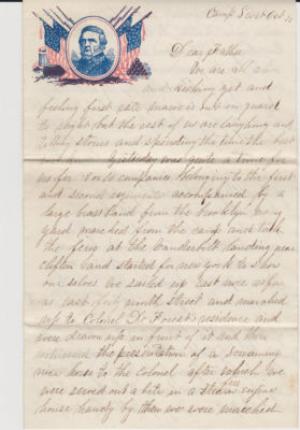 Camp Scott Oct
Dear Father
We are all
and kicking yet and
feeling first rate is on guard
to night but the rest of us are laughing and
telling stories and spending the time the best
Yesterday was quite a time for
us for companies belonging to the first
and second regiments accompanied by a
large brass band from the brooklyn navy
yard marched from the camp and took
the ferry at the Vanderbilt landing near
clifton and started for new york to show
our selves We sailed up east river as far
as east forty ninth street and marched
up to Colonel De Forest's residence and
were drawn up in front of it and then
witnessed the presentation of a
war horse to the colonel after which we
were served out a bite in a fire engine
house handy by then we were marched